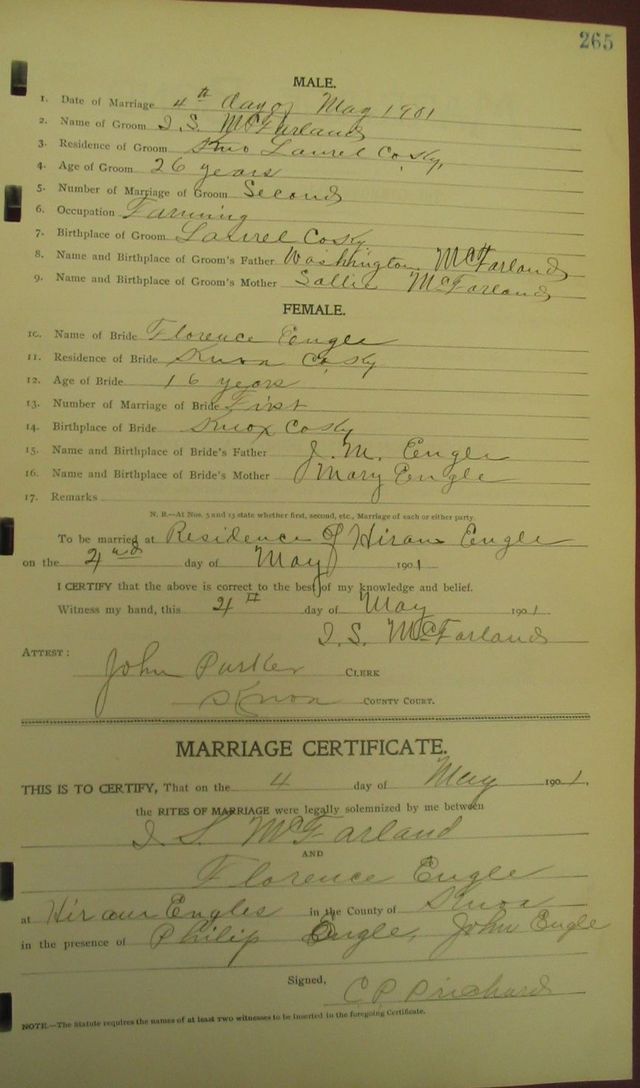 265
MALE.
1. Date of Marriage 4th day of May 1901
2. Name of Groom I. S. McFarland
3. Residence of Groom Laurel Co Ky,
4. Age of Groom 26 years
5. Number of Marriage of Groom Second
6. Occupation Farming
7. Birthplace of Groom Laurel Co Ky
8. Name and Birthplace of Groom's Father Washington McFarland
9. Name and Birthplace of Groom's Mother Sallie McFarland
FEMALE.
10. Name of Bride Florence Engle
11. Residence of Bride Knox Co, Ky
12. Age of Bride 16 years
13. Number of Marriage of Bride First
14. Birthplace of Bride Knox Co Ky
15. Name and Birthplace of Bride's Father J. M. Engle
16. Name and Birthplace of Bride's Mother Mary Engle
17. Remarks
N. B.—At Nos. 5 and 13 state whether first, second, etc., Marriage of each or either party
To be married at Residence of Hiram Engle
on the 4 day of May 1901
I CERTIFY that the above is correct to the best of my knowledge and belief.
Witness my hand, this 4th day of May 1901
I. S. McFarland
ATTEST: John Parker CLERK
Knox COUNTY COURT.
MARRIAGE CERTIFICATE.
THIS IS TO CERTIFY, That on the 4 day of May 1901,
the RITES OF MARRIAGE were legally solemnized by me between
I S. McFarland
AND
Florence Engle
at Hiram Engles in the County of Knox
in the presence of Philip Engle, John Engle
Signed, C P Prichard
NOTE.—The Statute requires the names of at least two witnesses to be inserted in the foregoing Certificate.